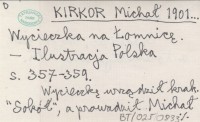 D
KIRKOR Michał 1901...
Wycieczka na Łomnicę.
— Ilustracja Polska
s. 357-359.
Wycieczkę urządził krak.
"Sokół", a prowadził Michał